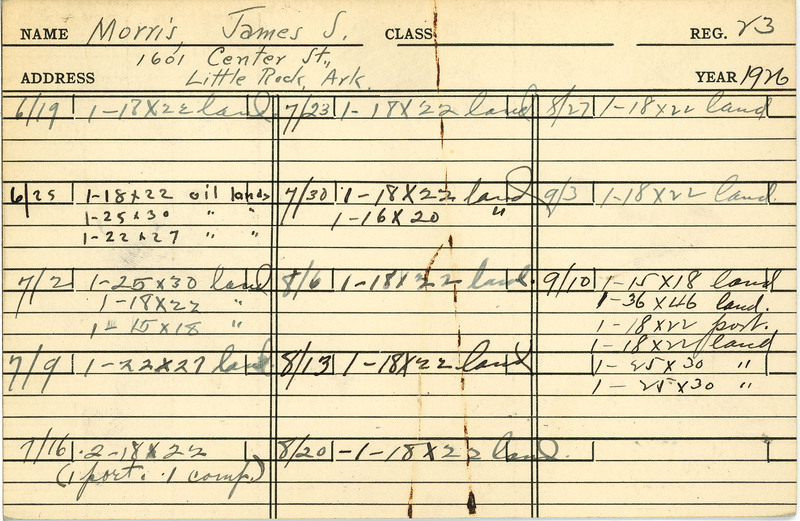 NAME Morris, James S. CLASS REG. 23
1601 Center St.,
ADDRESS Little Rock, Ark. YEAR 1926
6/19 1-18X22 land
6/25 1-18X22 oil lands
1-25X30 " "
1-22X27 " "
7/2 1-25X30 land
1-18X22 "
1-15X18 "
7/9 1-22X27 land
7/16 2-18X22
(1 port. 1 comp.)
7/23 1-18X22 land
7/30 1-18X22 land
1-16X20 "
8/6 1-18X22 land.
8/13 1-18X22 land
8/20 -1-18X22 land.
8/27 1-18X22 land
9/3 1-18X22 land.
9/10 1-15X18 land
1-36X46 land.
1-18X22 port.
1-18X22 land
1-25X30 "
1-25X30 "